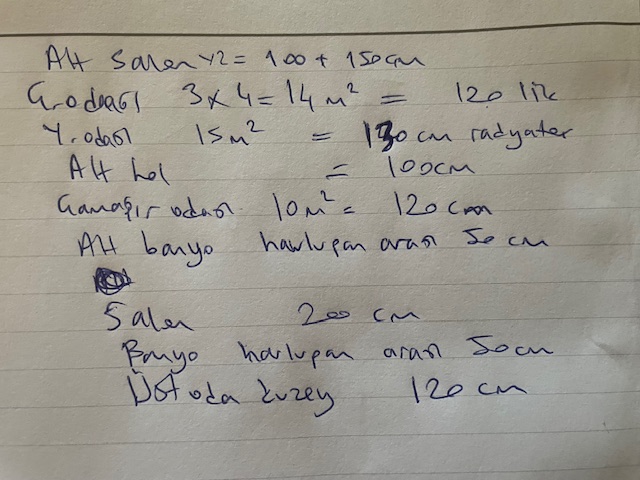 Alt salon Y2 = 100 + 150 cm
G.odası 3x4 = 14 m² = 120 lik
Y.odası 15 m² = 130 cm radyater
Alt hol = 100 cm
Çamaşır odası 10 m² = 120 cm
Alt banyo havlupan arası 50 cm
Salon 200 cm
Banyo havlupan arası 50 cm
Üst oda kuzey 120 cm